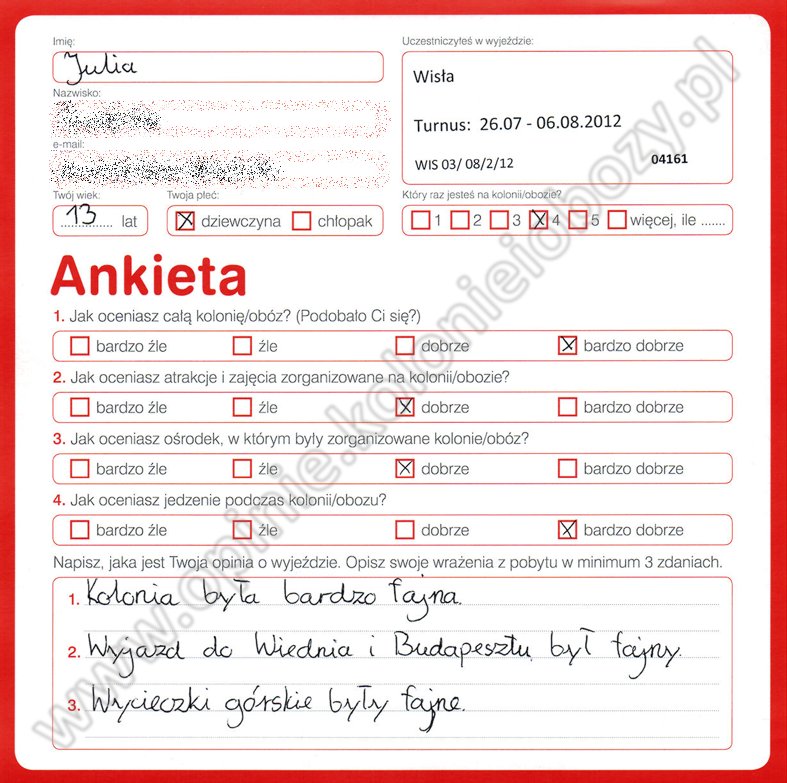 Imię:
Julia
Nazwisko:
e-mail:
Twój wiek:
13 lat
Twoja płeć:
dziewczyna chłopak
Uczestniczyłeś w wyjeździe:
Wisła
Turnus: 26.07 - 06.08.2012
WIS 03/ 08/2/12 04161
Który raz jesteś na kolonii/obozie?
1 2 3 4 5 więcej, ile .......
Ankieta
1. Jak oceniasz całą kolonię/obóz? (Podobało Ci się?)
bardzo źle źle dobrze bardzo dobrze
2. Jak oceniasz atrakcje i zajęcia zorganizowane na kolonii/obozie?
bardzo źle źle dobrze bardzo dobrze
3. Jak oceniasz ośrodek, w którym były zorganizowane kolonie/obóz?
bardzo źle źle dobrze bardzo dobrze
4. Jak oceniasz jedzenie podczas kolonii/obozu?
bardzo źle źle dobrze bardzo dobrze
Napisz, jaka jest Twoja opinia o wyjeździe. Opisz swoje wrażenia z pobytu w minimum 3 zdaniach.
1. Kolonia była bardzo fajna.
2. Wyjazd do Wiednia i Budapesztu był fajny.
3. Wycieczki górskie były fajne.
www.opinie.kolonieiobozy.pl